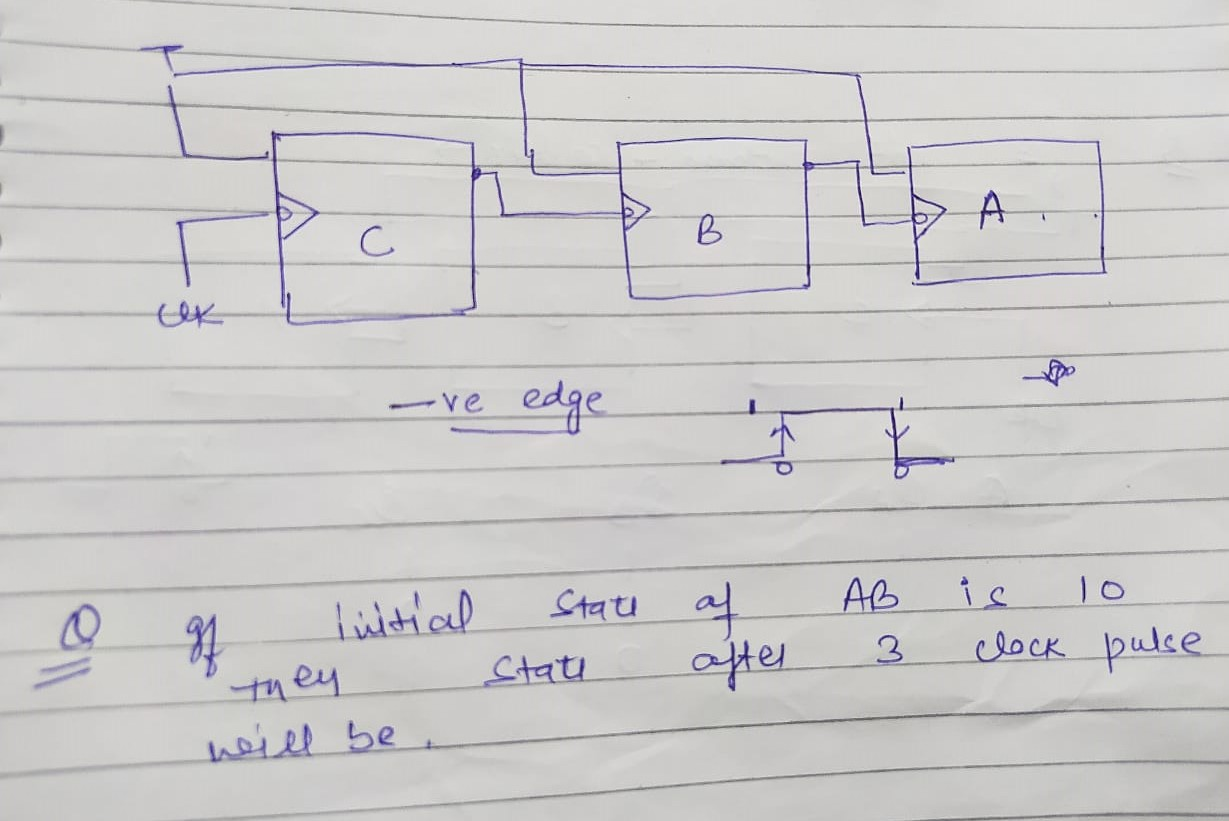 T
C
B
A
CLK
-ve edge
Q If initial state of AB is 10
they state after 3 clock pulse
will be.